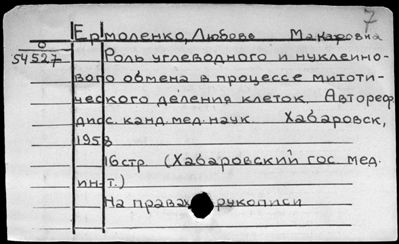 7
Ермоленко, Любовь Макаровна
О
54527
Роль углеводного и нуклеино-
вого обмена в процессе митоти-
ческого деления клеток. Автореф
дисс. канд. мед. наук. Хабаровск,
1958
16стр. (Хабаровский гос. мед.
ин-т.)
На правах рукописи